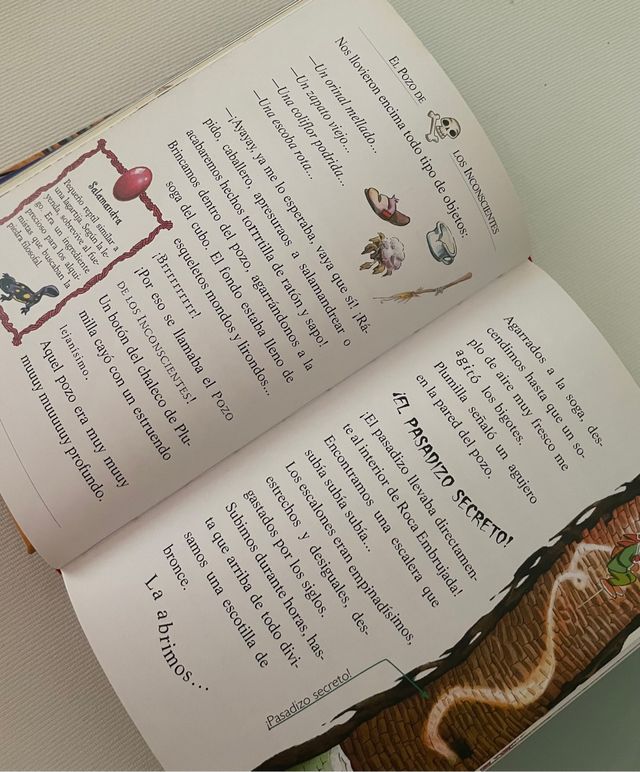 EL POZO DE LOS INCONSCIENTES
Nos llovieron encima todo tipo de objetos:
—Un orinal mellado...
—Un zapato viejo...
—Una coliflor podrida...
—Una escoba rota...
—¡Ayayay, ya me lo esperaba, vaya que sí! ¡Rá-
pido, caballero, apresuraos a salamandrear o
acabaremos hechos torrrrtilla de ratón y sapo!
Brincamos dentro del pozo, agarrándonos a la
soga del cubo. El fondo estaba lleno de
esqueletos mondos y lirondos...
¡Brrrrrrrrr!
¡Por eso se llamaba el POZO
DE LOS INCONSCIENTES!
Un botón del chaleco de Plu-
milla cayó con un estruendo
lejanísimo.
Aquel pozo era muy muuy
muuuy muuuuuy profundo.
Salamandra
Pequeño reptil similar a
una lagartija. Según la le-
yenda, sobrevive al fue-
go. Era un ingrediente
precioso para los alqui-
mistas que buscaban la
piedra filosofal.
Agarrados a la soga, des-
cendimos hasta que un so-
plo de aire muy fresco me
agitó los bigotes.
Plumilla señaló un agujero
en la pared del pozo.
¡EL PASADIZO SECRETO!
¡El pasadizo llevaba directamen-
te al interior de Roca Embrujada!
Encontramos una escalera que
subía subía subía...
Los escalones eran empinadísimos,
estrechos y desiguales, des-
gastados por los siglos.
Subimos durante horas, has-
ta que arriba de todo divi-
samos una escotilla de
bronce.
La abrimos...
¡Pasadizo secreto!